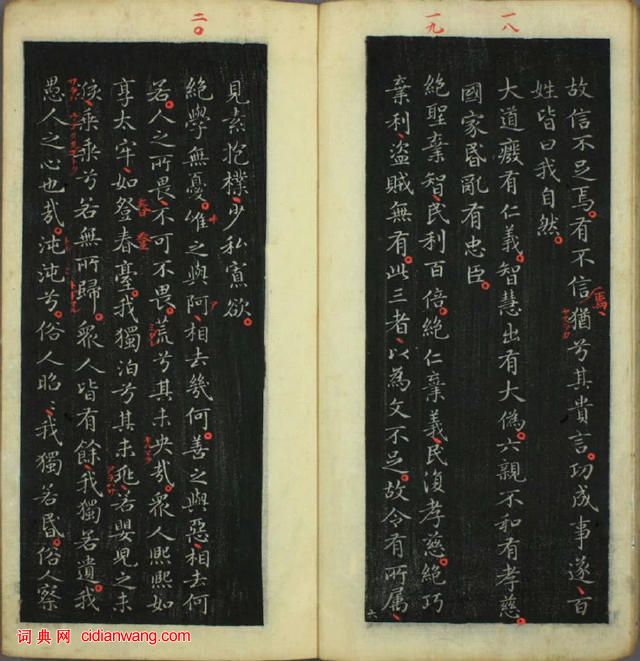 一八
故信不足焉。有不信猶兮其貴言。功成事遂、百
焉
姓皆曰我自然。
大道廢有仁義。智慧出有大偽。六親不和有孝慈。
國家昏亂有忠臣。
一九
絕聖棄智、民利百倍。絕仁棄義、民復孝慈。絕巧
棄利、盜賊無有。此三者、以為文不足。故令有所属、
六
見素抱樸、少私寡欲。
二〇
絕學無憂。唯之與阿、相去幾何。善之與惡、相去何
若。人之所畏、不可不畏。荒兮其未央哉。眾人熙熙如
享太牢、如登春臺。我獨泊兮其未兆、若嬰兒之未
春登
孩、乘乘兮若無所歸。眾人皆有餘、我獨若遺。我
愚人之心也哉。沌沌兮。俗人昭〻、我獨若昏。俗人察
词典网 cidianwang.com